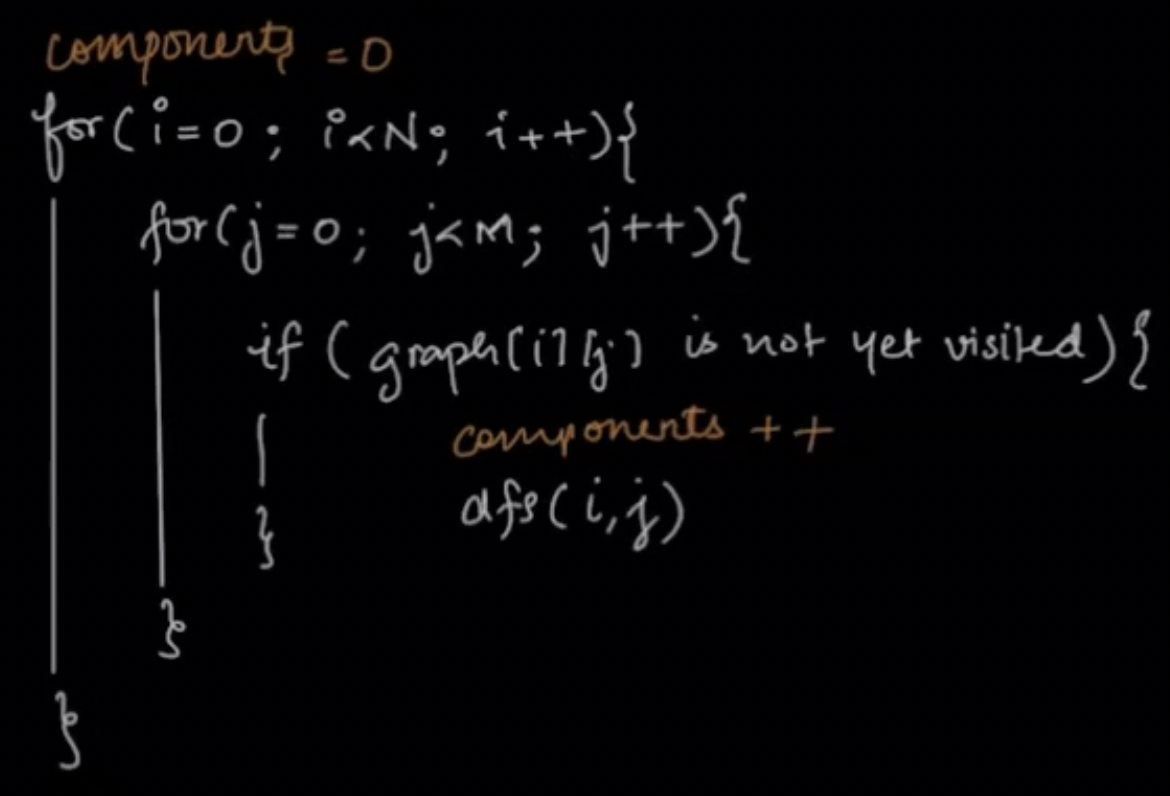 components = 0
for(i=0; i<N; i++){
for(j=0; j<M; j++){
if (graph[i][j] is not yet visited){
components ++
dfs(i,j)
}
}
}